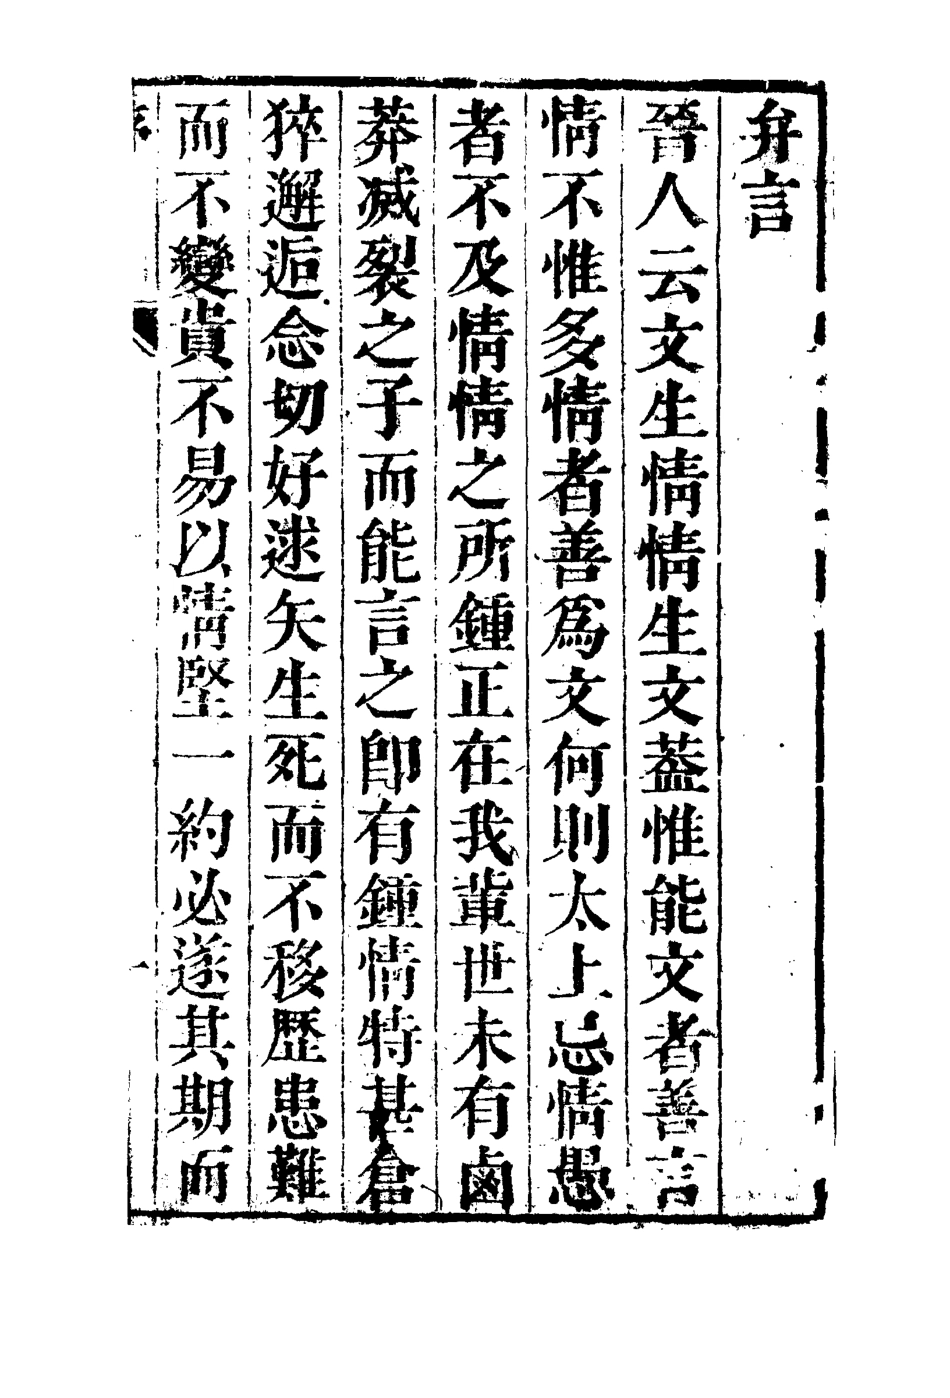 弁言
晉人云文生情情生文葢惟能文者善言
情不惟多情者善爲文何則太上忘情愚
者不及情情之所鍾正在我軰世未有鹵
莽滅裂之子而能言之卽有鍾情特甚倉
猝邂逅念切好逑矢生死而不移歷患難
而不變貴不易以情堅一約必遂其期而